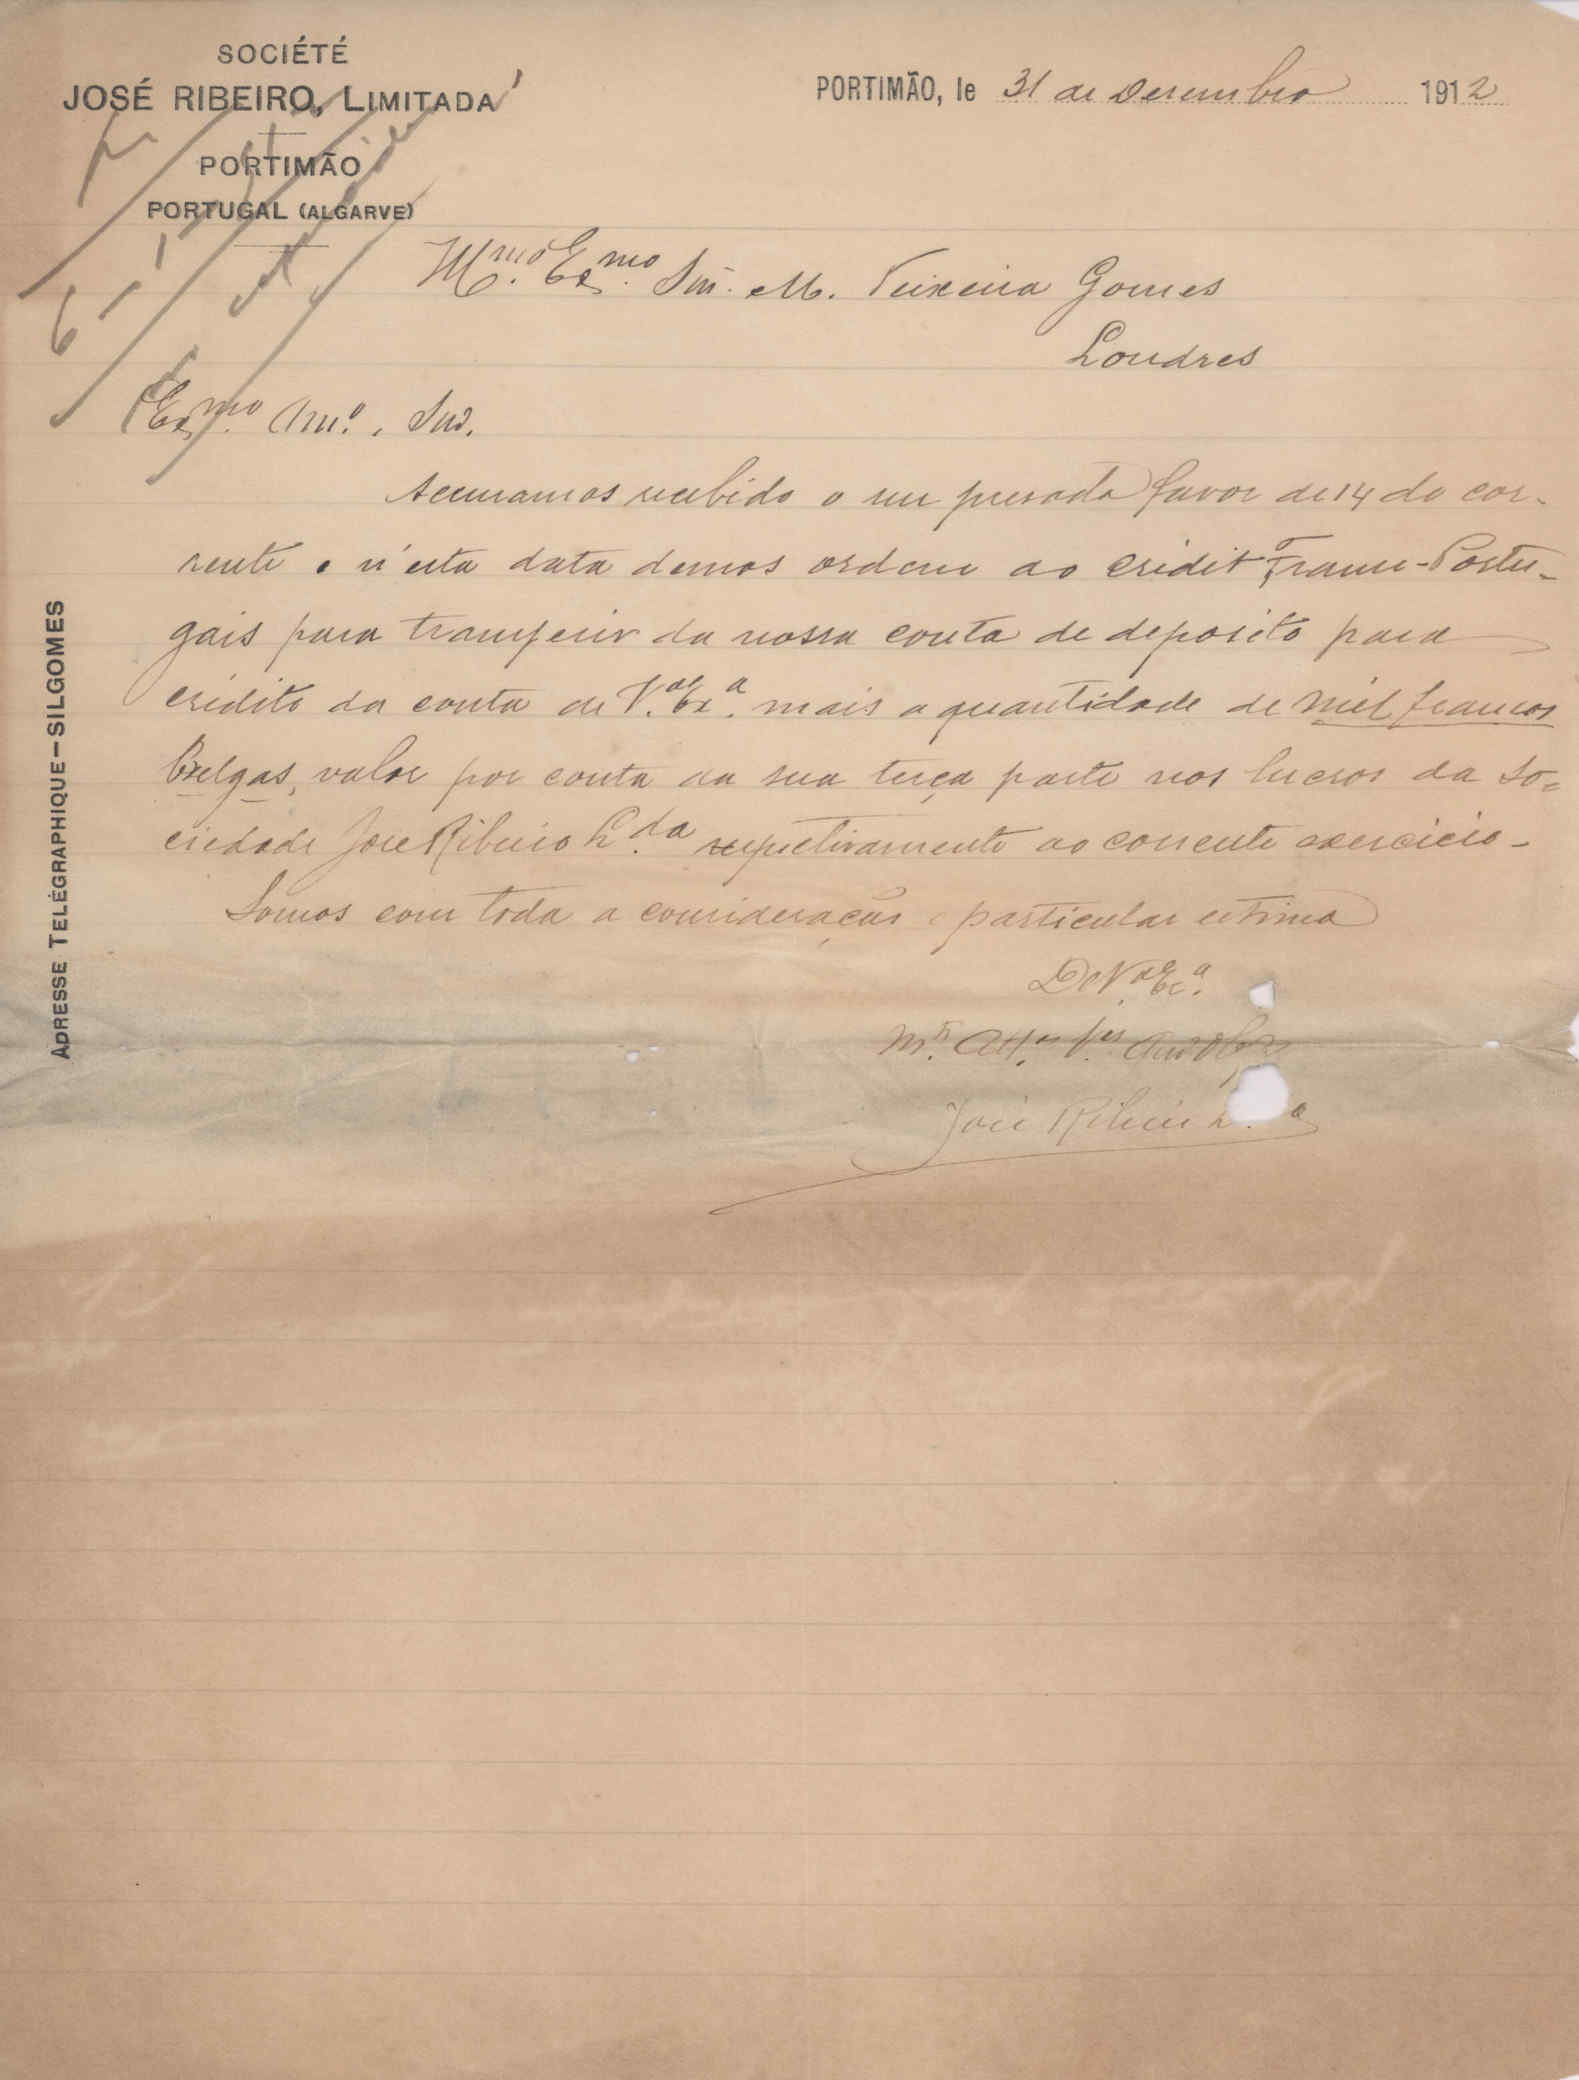 SOCIÉTÉ
JOSÉ RIBEIRO, LIMITADA
PORTIMÃO
PORTUGAL (ALGARVE)
PORTIMÃO, le 31 de Dezembro 1912
Illmo. Exmo. Snr. M. Teixeira Gomes
Londres
Exmo. Amo. e Snr.
Accusamos recebido o seu presado favor de 14 do cor-
rente e n'esta data demos ordem ao Crédit Franco-Portu-
gais para transferir da nossa conta de deposito para
crédito da conta de V.a Ex.a mais a quantidade de mil francos
Belgas, valor por conta da sua terça parte nos lucros da So-
ciedade José Ribeiro L.da respectivamente ao corrente exercicio-
Somos com toda a consideração e particular estima
De V.a Ex.a
Mtos. Attos. Ams. Obgdos
José Ribeiro L.da
ADRESSE TELÉGRAPHIQUE-SILGOMES